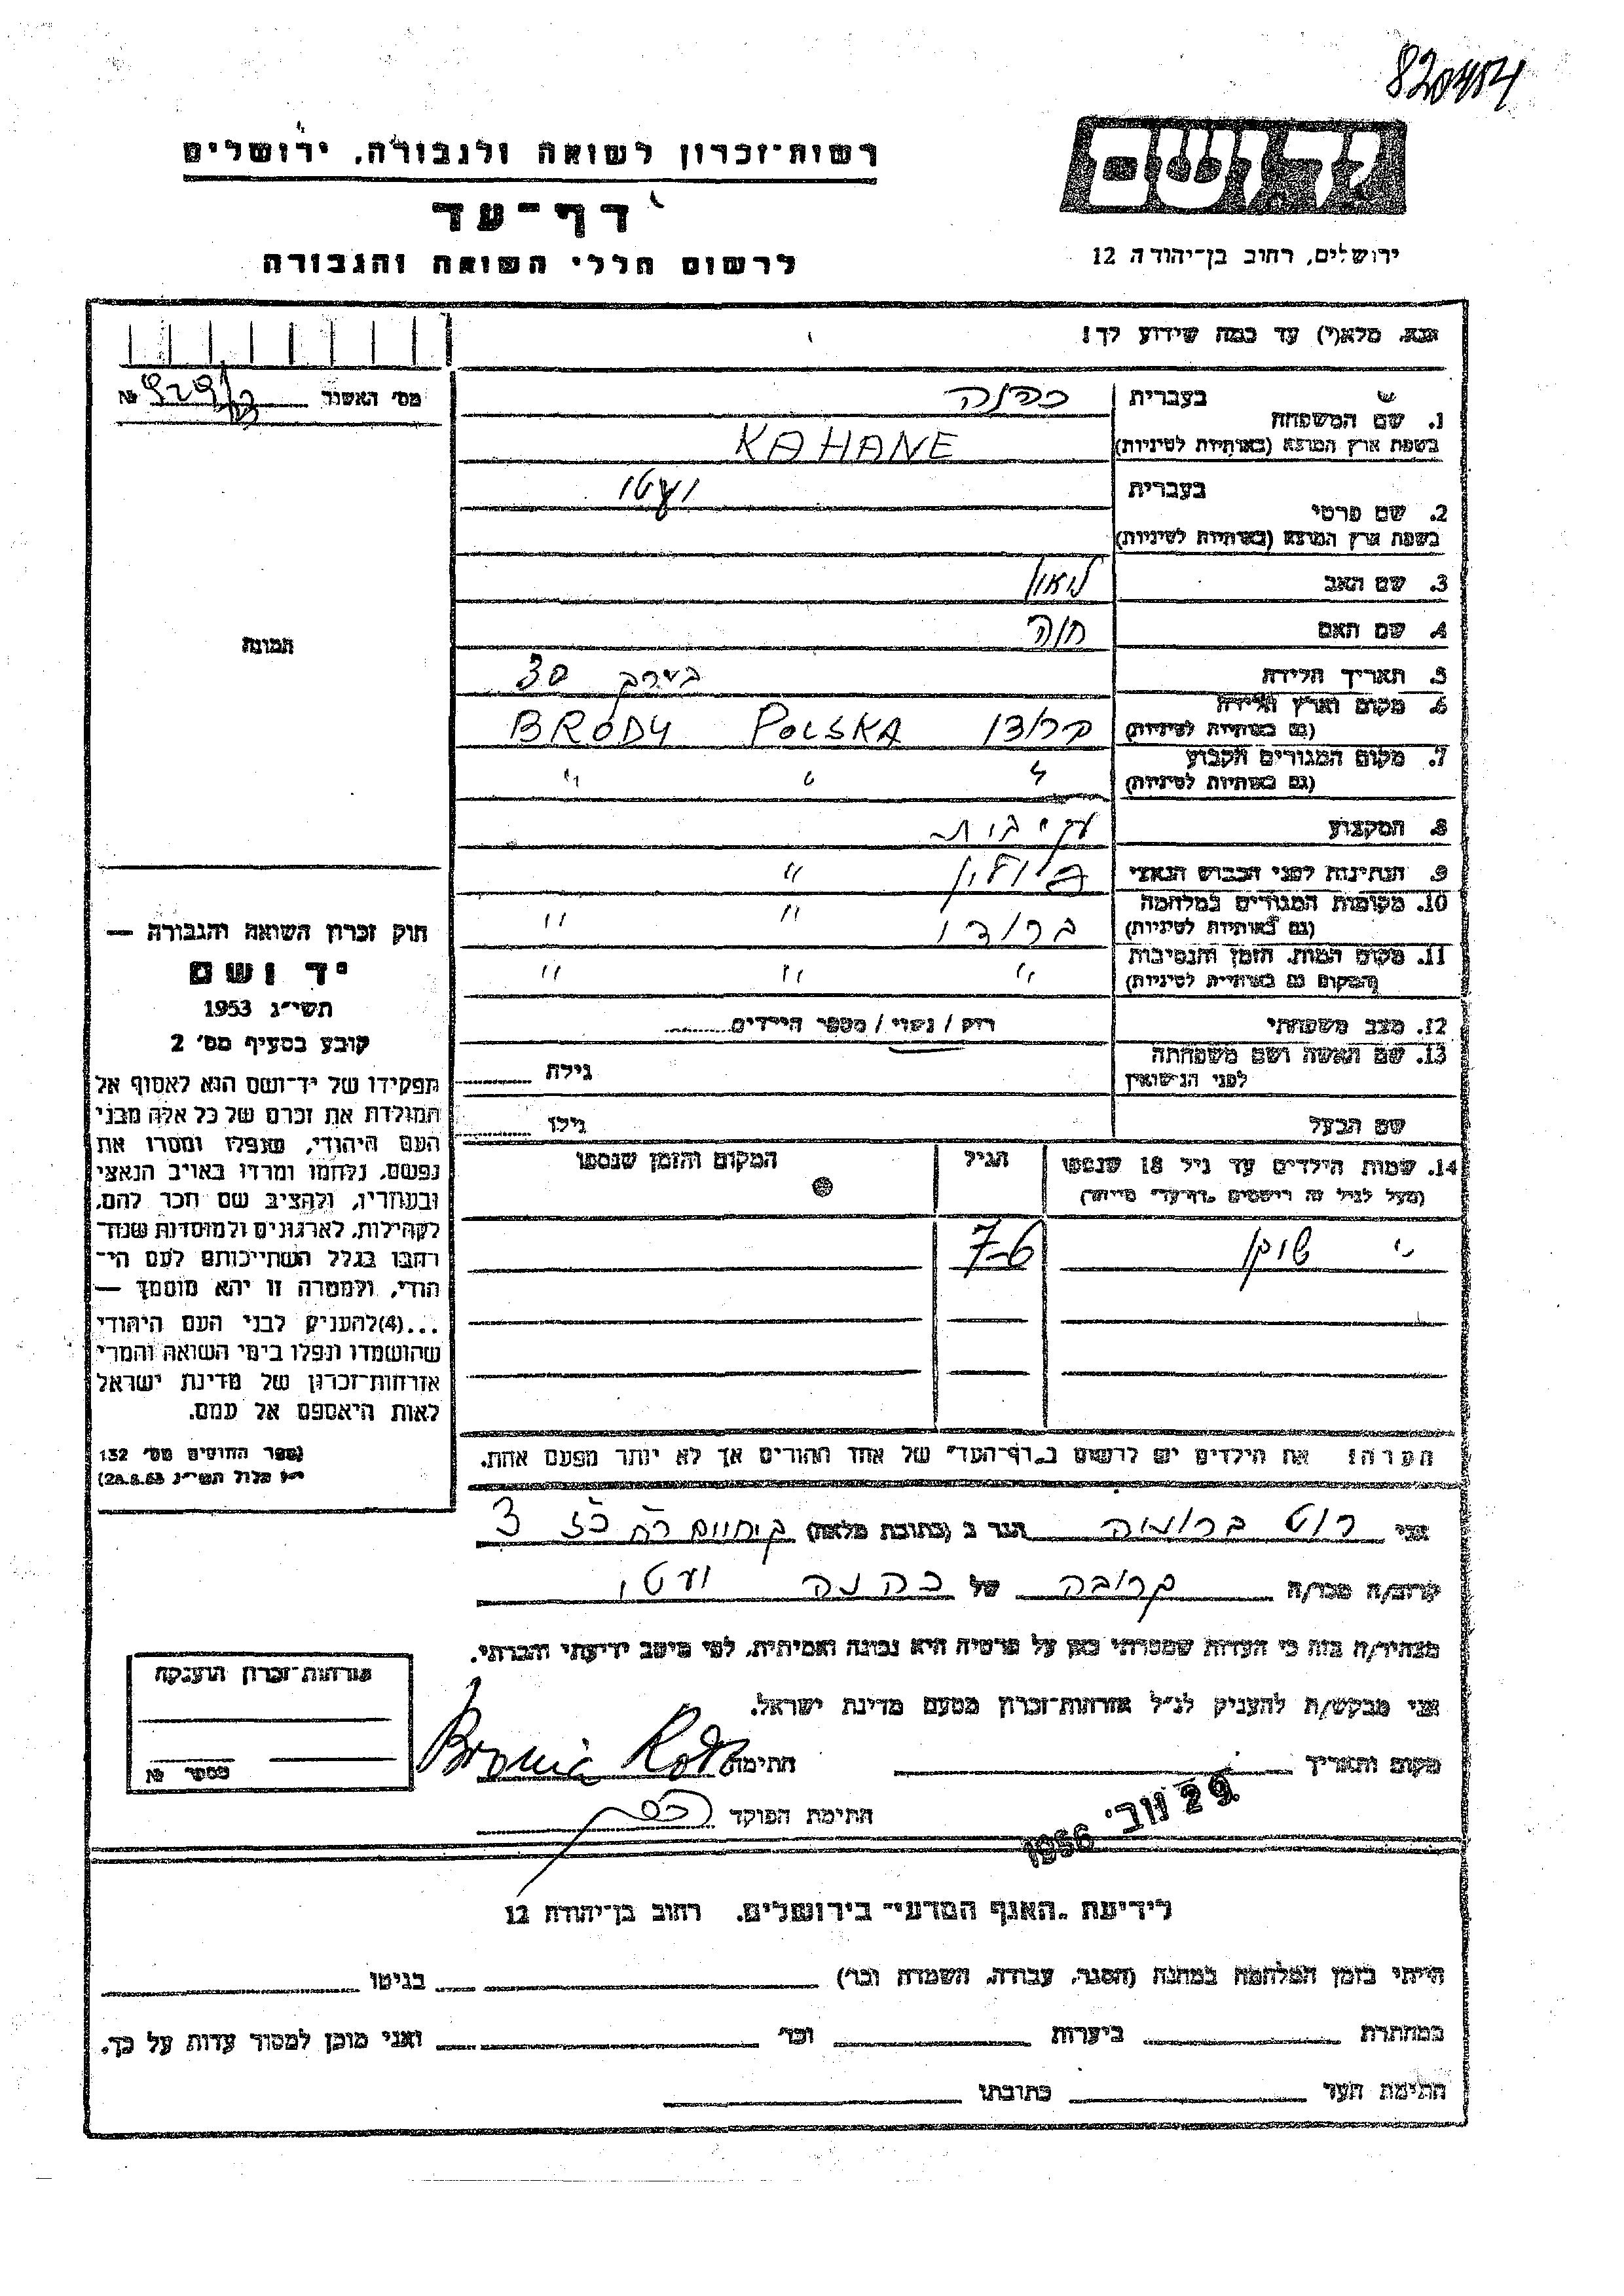 820484
רשות־זכרון לשואה ולגבורה, ירושלים
יד ושם
דף־עד
לרשום חללי השואה והגבורה
ירושלים, רחוב בן־יהודה 12
נא, מלא(י) עד כמה שידוע לך!
מס׳ האשור №
1. שם המשפחה
בעברית כהנה
בשפת ארץ המוצא (באותיות לטיניות) KAHANE
2. שם פרטי
בעברית יעטי
בשפת ארץ המוצא (באותיות לטיניות)
3. שם האב ליאון
4. שם האם חוה
תמונה
5. תאריך הלידה בערך 30
6. מקום וארץ הלידה
(גם באותיות לטיניות) ברודי POLSKA BRODY
7. מקום המגורים הקבוע
(גם באותיות לטיניות) " " "
8. המקצוע
9. הנתינות לפני הכבוש הנאצי "
10. מקומות המגורים במלחמה
(גם באותיות לטיניות) ברודי " "
11. מקום המות, הזמן והנסיבות
(המקום גם באותיות לטיניות) " " "
12. מצב משפחתי רווק / נשוי / מספר הילדים
13. שם האשה ושם משפחתה
לפני הנישואין גילה
שם הבעל גילו
14. שמות הילדים עד גיל 18 שנספו הגיל המקום והזמן שנספו
(מעל לגיל זה רושמים „דף־עד״ מיוחד)
7-6
הערה: את הילדים יש לרשום ב„דף־העד״ של אחד ההורים אך לא יותר מפעם אחת.
חוק זכרון השואה והגבורה —
יד ושם
תשי״ג 1953
קובע בסעיף מס׳ 2
תפקידו של יד־ושם הוא לאסוף אל
המולדת את זכרם של כל אלה מבני
העם היהודי, שנפלו ומסרו את
נפשם, נלחמו ומרדו באויב הנאצי
ובעוזריו, ולהציב שם וזכר להם,
לקהילות, לארגונים ולמוסדות שנח־
רבו בגלל השתייכותם לעם הי־
הודי, ולמטרה זו יהא מוסמך —
...(4)להעניק לבני העם היהודי
שהושמדו ונפלו בימי השואה והמרי
אזרחות־זכרון של מדינת ישראל
לאות היאספם אל עמם.
(ספר החוקים מס׳ 132
י״ז אלול תשי״ג 28.8.53)
אני רוט ברוניה הגר ב (כתובת מלאה) 3
קרוב/ה מכר/ה קרובה של כהנה יעטי
מצהיר/ה בזה כי העדות שמסרתי כאן על פרטיה היא נכונה ואמיתית, לפי מיטב ידיעתי והכרתי.
אני מבקש/ת להעניק לנ״ל אזרחות־זכרון מטעם מדינת ישראל.
מקום ותאריך 29 נוב׳ 1956 חתימה Bronia Roth
חתימת הפוקד
אזרחות־זכרון הוענקה
מספר №
לידיעת „האגף המדעי״ בירושלים, רחוב בן־יהודה 12
הייתי בזמן המלחמה במחנה (הסגר, עבודה, השמדה וכו׳) בגיטו
במחתרת ביערות וכו׳ ואני מוכן למסור עדות על כך.
חתימת העד כתובתו